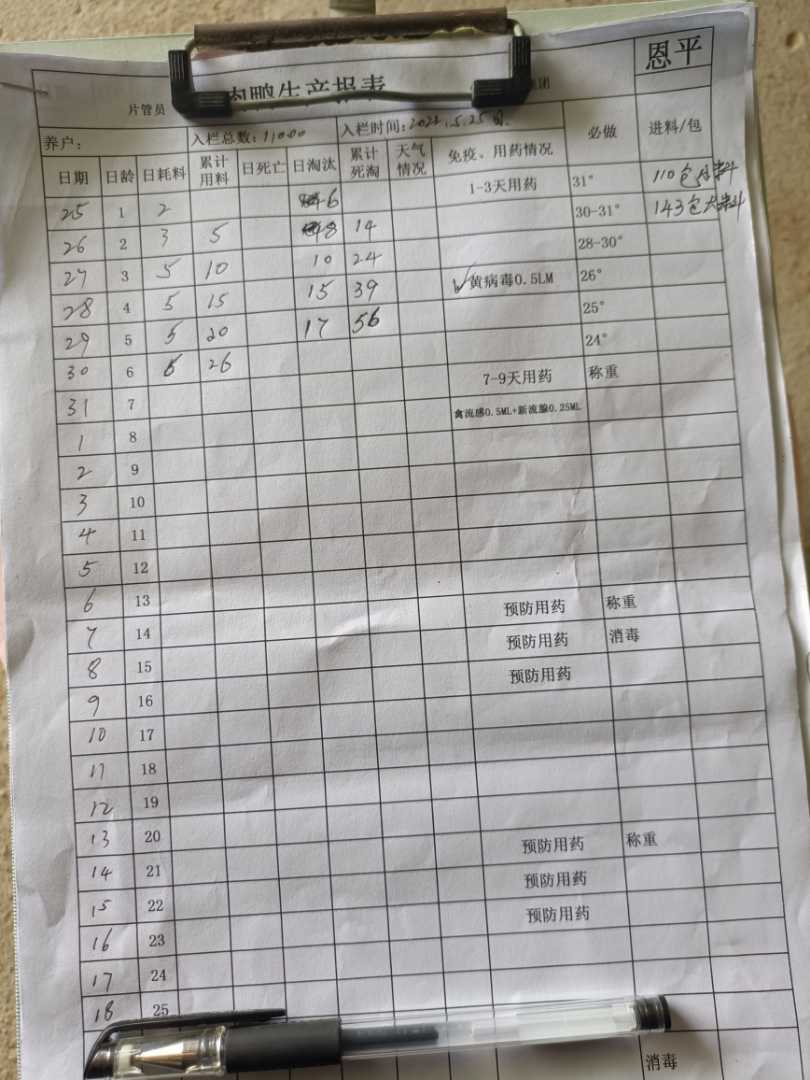 恩平
肉鸭生产报表
片管员 团
养户: 入栏总数:11000 入栏时间:2022.5.25日.
日期 日龄 日耗料 累计用料 日死亡 日淘汰 累计死淘 天气情况 免疫、用药情况 必做 进料/包
25 1 2 6 1-3天用药 31° 110包
26 2 3 5 8 14 30-31° 143包大
27 3 5 10 10 24 28-30°
28 4 5 15 15 39 黄病毒0.5LM 26°
29 5 5 20 17 56 25°
30 6 6 26 24°
31 7 7-9天用药 称重
1 8 禽流感0.5ML+新流腺0.25ML
2 9
3 10
4 11
5 12
6 13
7 14 预防用药 称重
8 15 预防用药 消毒
9 16 预防用药
10 17
11 18
12 19
13 20
14 21 预防用药 称重
15 22 预防用药
16 23 预防用药
17 24
18 25
消毒